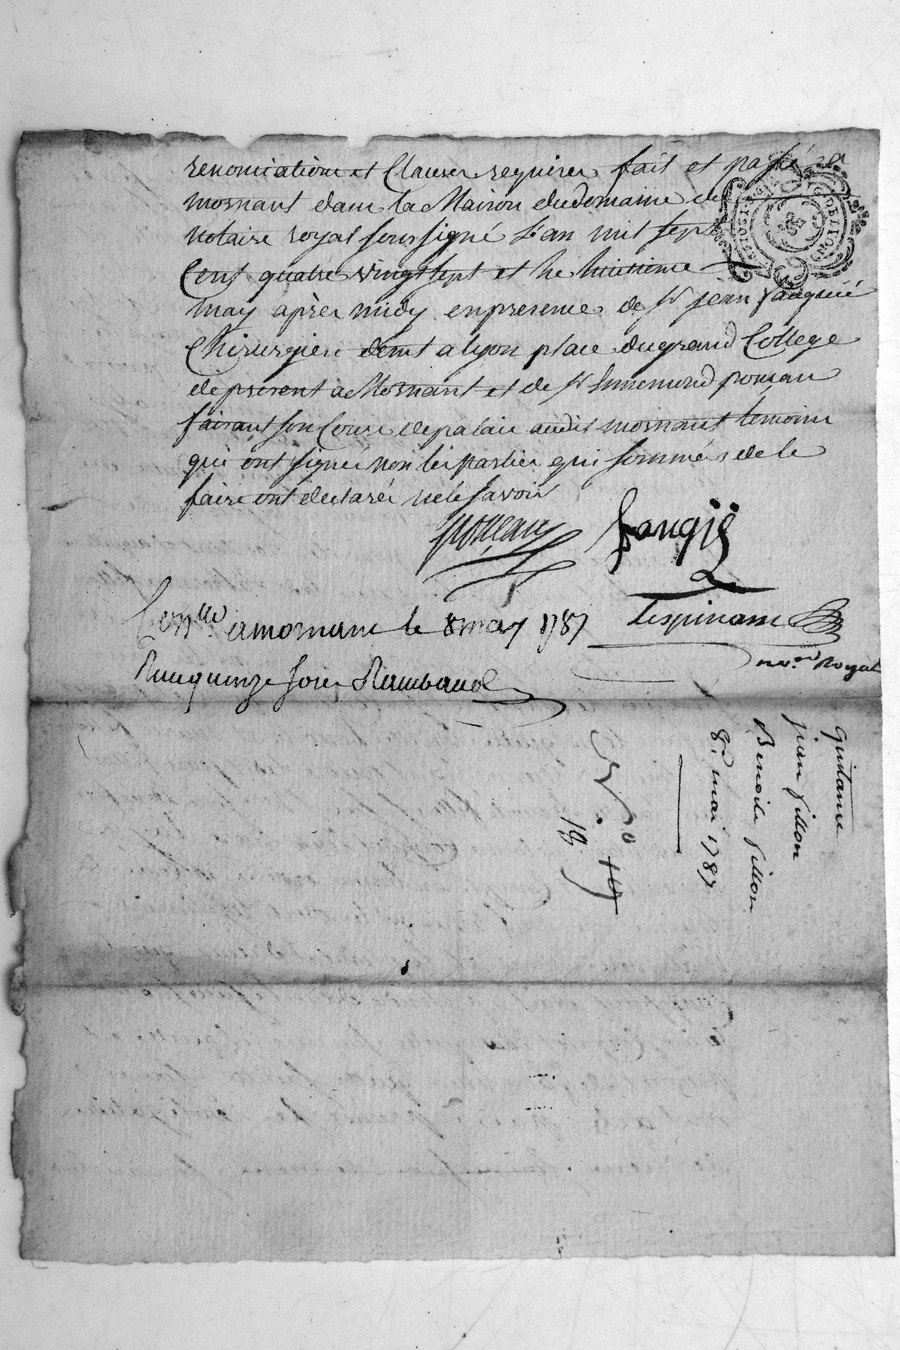 renonciations et Clauses requises fait et passé a
mornant dans la Maison du domaine du
notaire royal soussigné L'an mil sept
Cent quatre vingt sept et le huitieme
may après midy en presence de Sr jean
Chirurgien demt a lyon place du grand College
de présent a Mornant et de Sr Ennemond poncau
faisant son Cours de palais audit mornant temoins
qui ont signés non les parties qui sommés de le
faire ont declaré ne le savoir
Lespinasse
Royal
Conllé a mornant le 8 may 1787
Reçu quinze sols Rambaud
Quitance
jean fillon
Benoite fillon
8e. mai 1787
No
19
GEN DE LYON